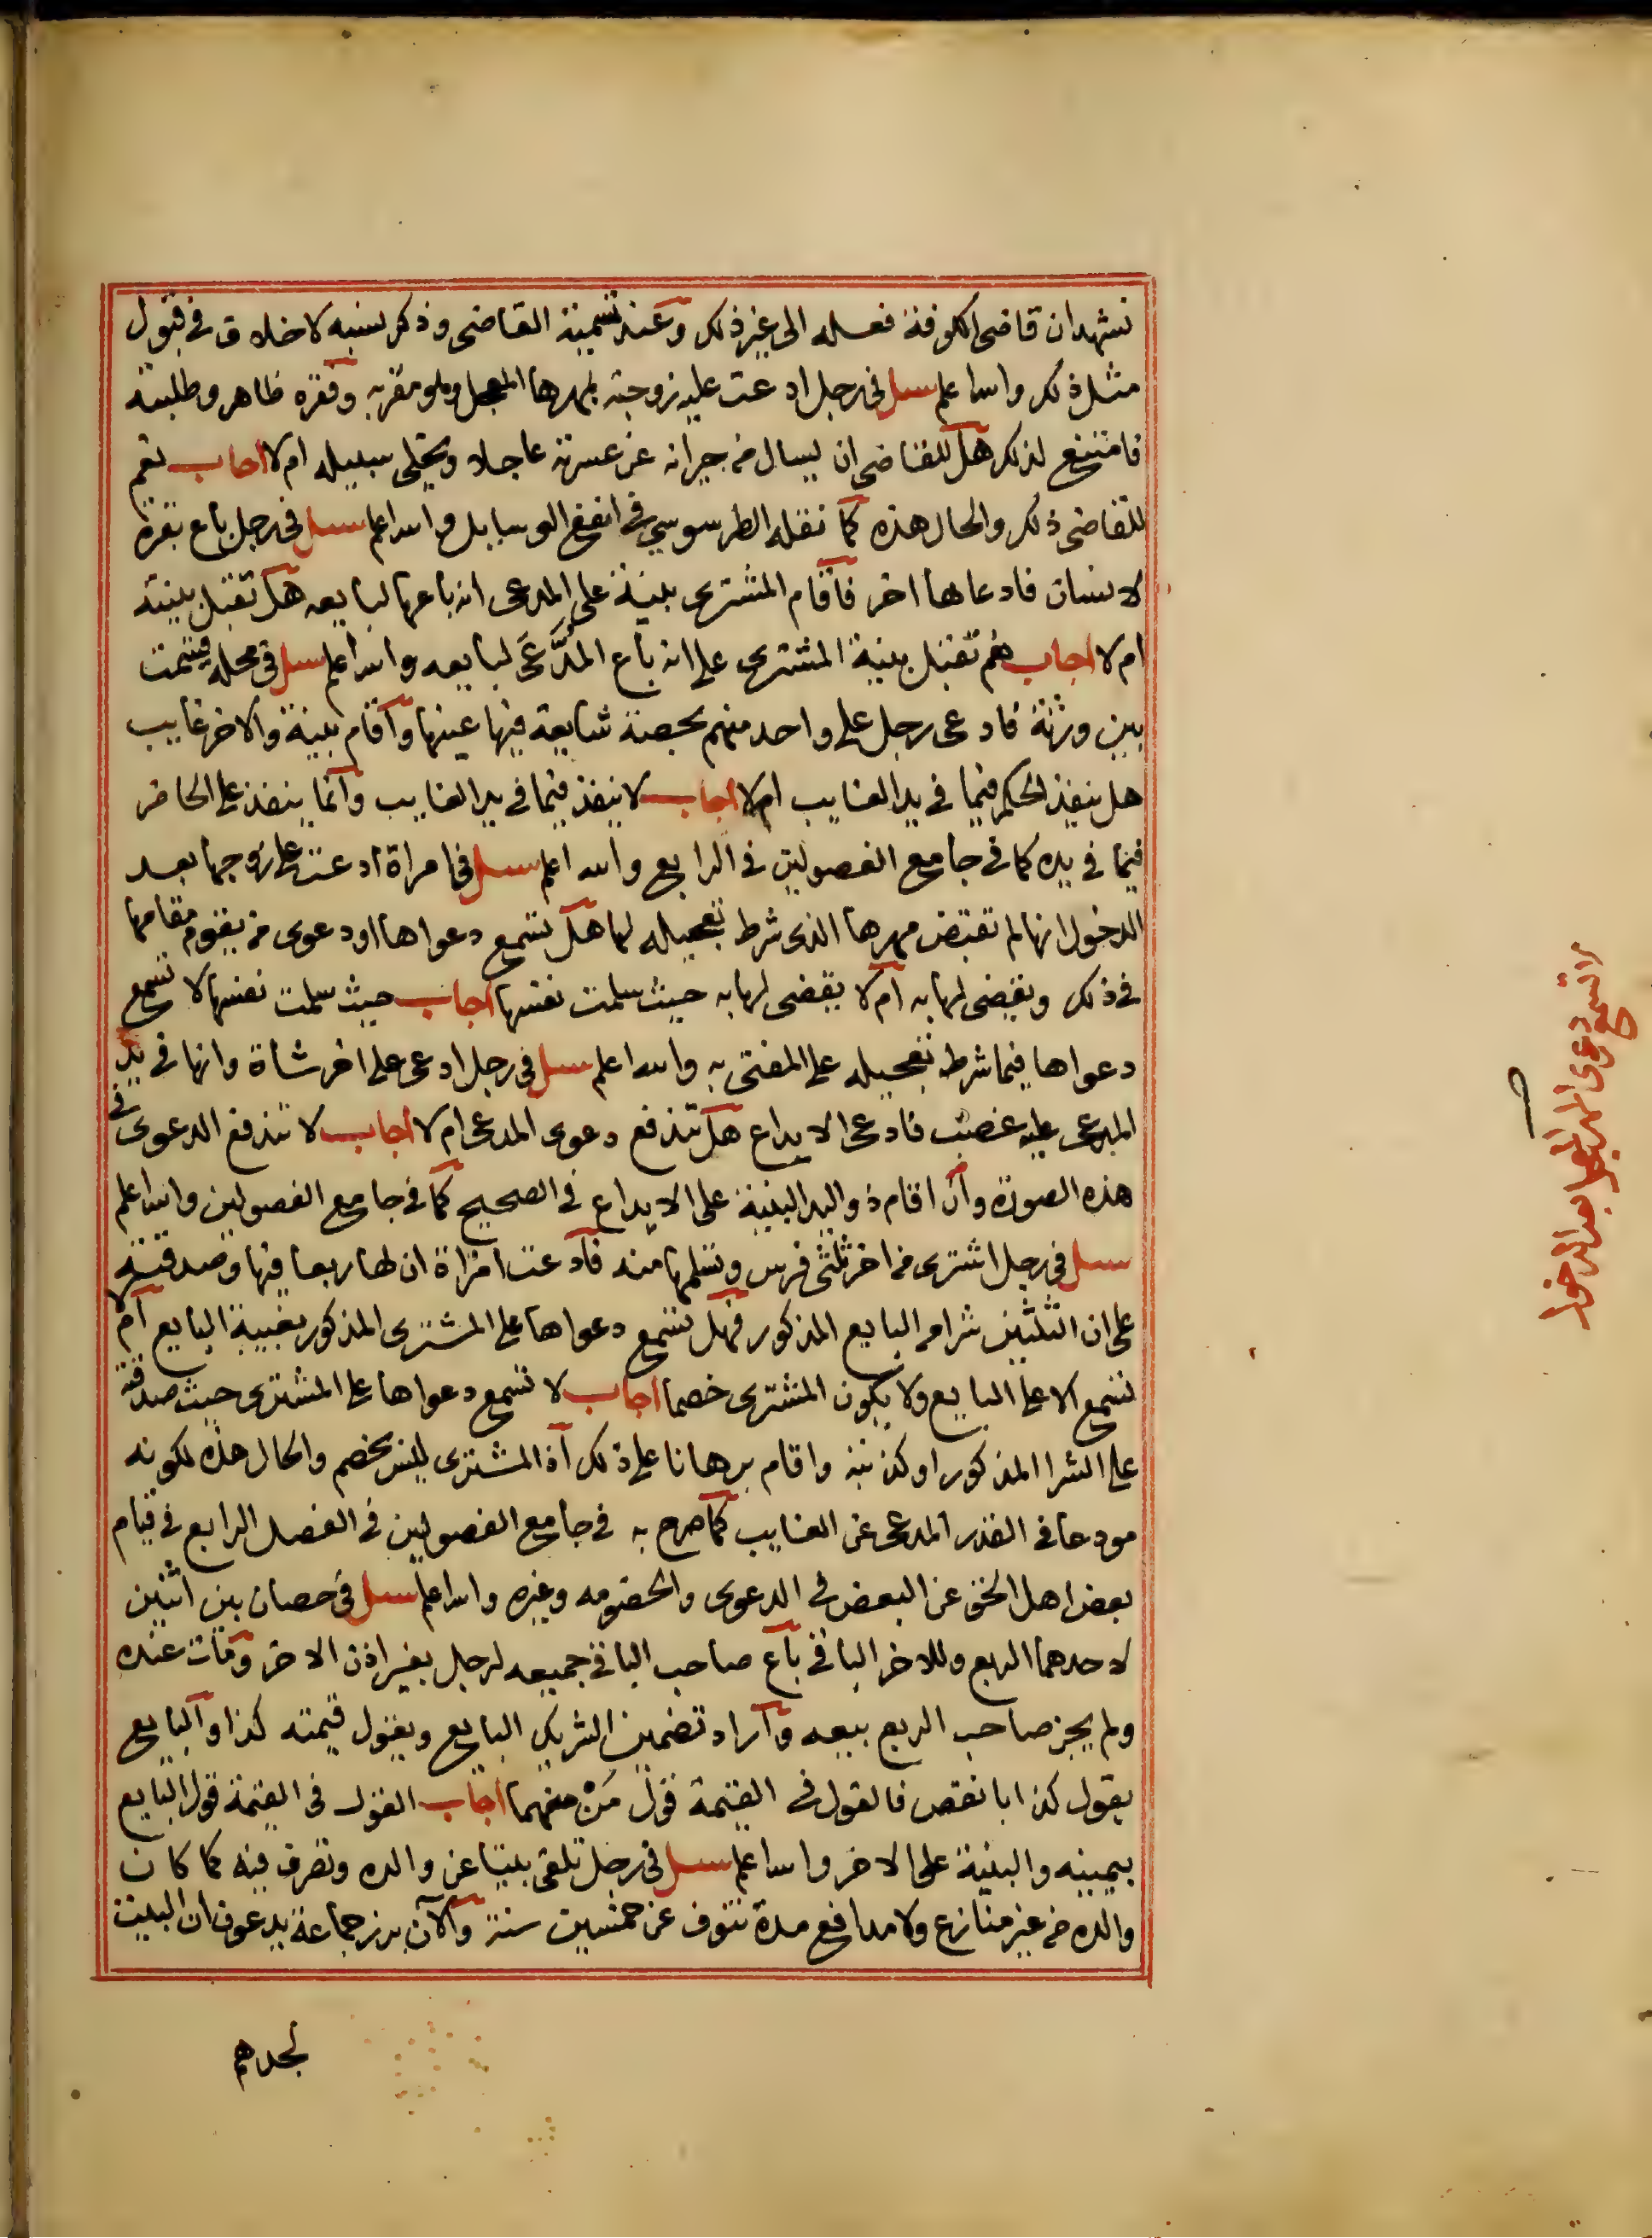 نشهد ان قاضي الكوفة فعله الى غير ذلك وعند تسمية القاضي وذكر نسبه لا خلاف في قبول
مثل ذلك والله اعلم سئل في رجل ادعت عليه زوجته بمهرها المعجل وهو مقر به وفقره ظاهر وطلبته
فامتنع لذلك هل للقاضي ان يسال من جيرانه عن عسرته عاجلا ويخلى سبيله ام لا اجاب نعم
للقاضي ذلك والحال هذه كما نقله الطرسوسي في انفع الوسايل والله اعلم سئل في رجل باع بقرة
لانسان فادعاها اخر فاقام المشتري بينة على المدعى انه باعها لبايعه هل تقبل بينته
ام لا اجاب نعم تقبل بينة المشتري على انه باع المدَّعَى لبايعه والله اعلم سئل في محله قسمت
بين ورثة فادعى رجل على واحد منهم بحصة شايعة فيها عينها واقام بينة والاخر غايب
هل ينفذ الحكم فيما في يد الغايب ام لا اجاب لا ينفذ فيما في يد الغايب وانما ينفذ على الحاضر
فيما في يده كما في جامع الفصولين في الرابع والله اعلم سئل في امراة ادعت على زوجها بعد
الدخول انها لم تقبض مهرها الذي شرط تعجيله لها هل تسمع دعواها او دعوى من يقوم مقامها
في ذلك ويقضى لها به ام لا يقضى لها به حيث سلمت نفسها اجاب حيث سلمت نفسها لا تسمع
دعواها فيما شرط تعجيله على المفتى به والله اعلم سئل في رجل ادعى على اخر شاة وانها في يد
المدعى عليه غصب فادعى الايداع هل تندفع دعوى المدعى ام لا اجاب لا تندفع الدعوى في
هذه الصورة وان اقام ذو اليد البينة على الايداع في الصحيح كما في جامع الفصولين والله اعلم
سئل في رجل اشترى من اخر ثلثى فرس وتسلمها منه فادعت امراة ان لها ربعا فيها وصدقته
على ان الثلثين شراه من البايع المذكور فهل تسمع دعواها على المشتري المذكور بغيبة البايع ام لا
تسمع الا على البايع ولا يكون المشتري خصما اجاب لا تسمع دعواها على المشتري حيث صدقته
على الشرا المذكور او كذبته واقام برهانا على ذلك اذ المشتري ليس بخصم والحال هذه لكونه
مودعا في القدر المدعى عن الغايب كما صرح به في جامع الفصولين في الفصل الرابع في قيام
بعض اهل الحق عن البعض في الدعوى والخصومه وغيره والله اعلم سئل في حصان بين اثنين
لاحدهما الربع وللاخر الباقي باع صاحب الباقي جميعه لرجل بغير اذن الاخر ومات عنده
ولم يجز صاحب الربع بيعه واراد تضمين الشريك البايع ويقول قيمته كذا والبايع
يقول كذا بانقص فالقول في القيمة قول مَنْ منهما اجاب القول في القيمة قول البايع
بيمينه والبينة على الاخر والله اعلم سئل في رجل تلقى بيتا عن والده وتصرف فيه كما كان
والده من غير منازع ولا مدافع مدة تنوف عن خمسين سنة والآن برز جماعة يدعون ان البيت
لجدهم
لا تسمع دعوى المهر المعجل بعد الدخول